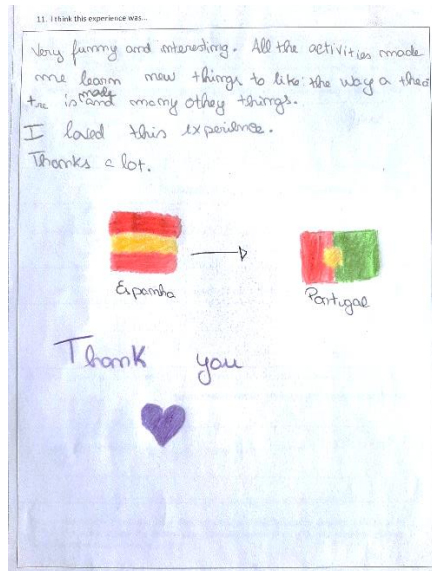 11. I think this experience was...
Very funny and interesting. All the activities made
me learn new things to like: the way a thea
tre is made and many othey things.
I loved this experience.
Thanks a lot.
Espanha
Portugal
Thank you